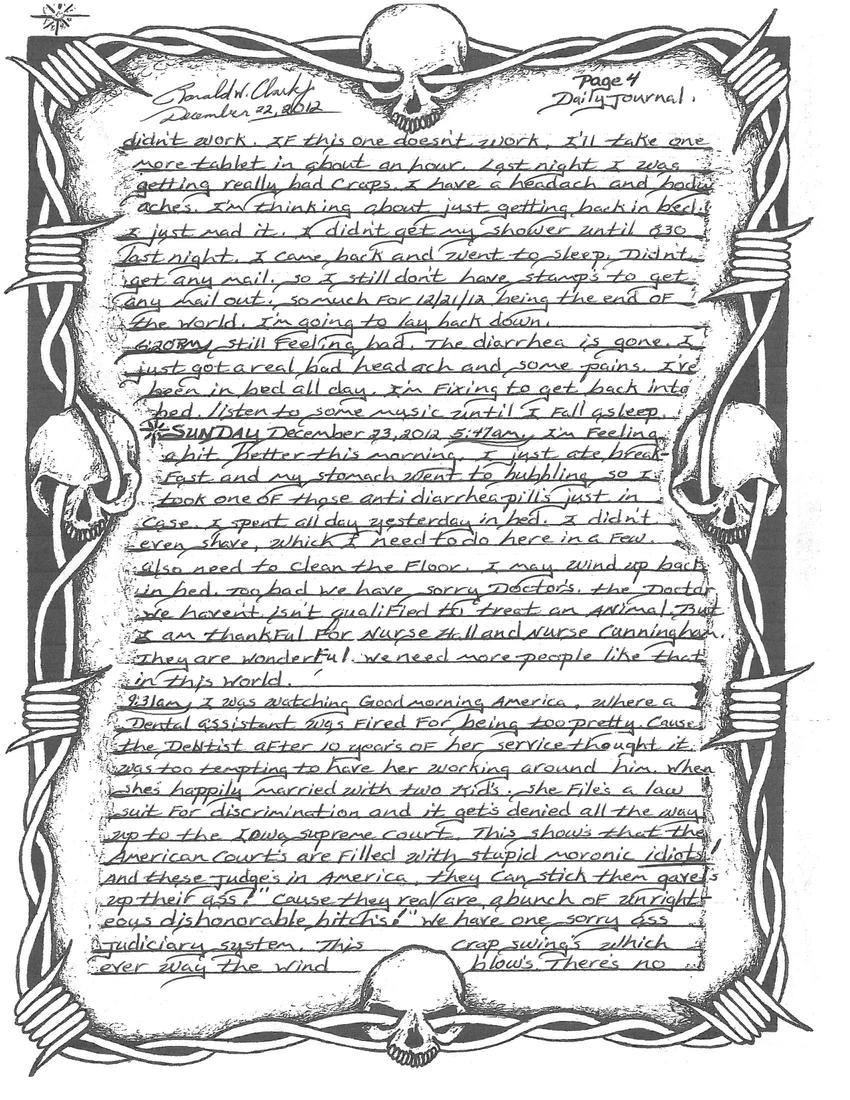 Ronald W. Clark Jr
Page 4
December 22, 2012
Daily Journal.
didn't work. IF this one doesn't work, I'll take one
more tablet in about an hour. Last night I was
getting really bad Craps. I have a headach and body
aches. I'm thinking about just getting back in bed.
I just mad it. I didn't get my shower until 830
last night. I came back and went to sleep. Didn't
get any mail, so I still don't have stamps to get
any mail out. so much For 12/21/12 being the end OF
the world. I'm going to lay back down.
6:20PM, still Feeling bad. The diarrhea is gone. I
just got a real bad head ach and some pains. I've
been in bed all day. I'm Fixing to get back into
bed. listen to some music until I Fall asleep.
SUNDAY December 23, 2012 5:47am, I'm Feeling
a bit better this morning. I just ate break-
Fast and my stomach went to bubbling so I
took one OF those anti diarrhea pills just in
Case. I spent all day yesterday in bed. I didn't
even shave, which I need to do here in a Few.
also need to clean the Floor. I may wind up back
in bed. Too bad we have sorry Doctor's. the Doctor
we haven't isn't qualiFied to treat an ANimal. But
I am thankFul For Nurse Hill and Nurse Cunningham.
They are wonderFul. we need more people like that
in this world.
9:31am, I was watching Good morning America, where a
Dental assistant was Fired For being too pretty. Cause
the DeNtist aFter 10 years OF her service thought it
was too tempting to have her working around him. When
she's happily married with two Kid's. she File's a law
suit For discrimination and it get's denied all the way
up to the Iowa supreme court. This show's that the
American Court's are Filled with stupid moronic idiots!
And these Judge's in America, they can stick them gavels
up their ass!" Cause they real are a bunch OF unright-
eous dishonorable bitch's!" We have one sorry ass
Judiciary system. This crap swing's which
ever way the wind blow's. There's no